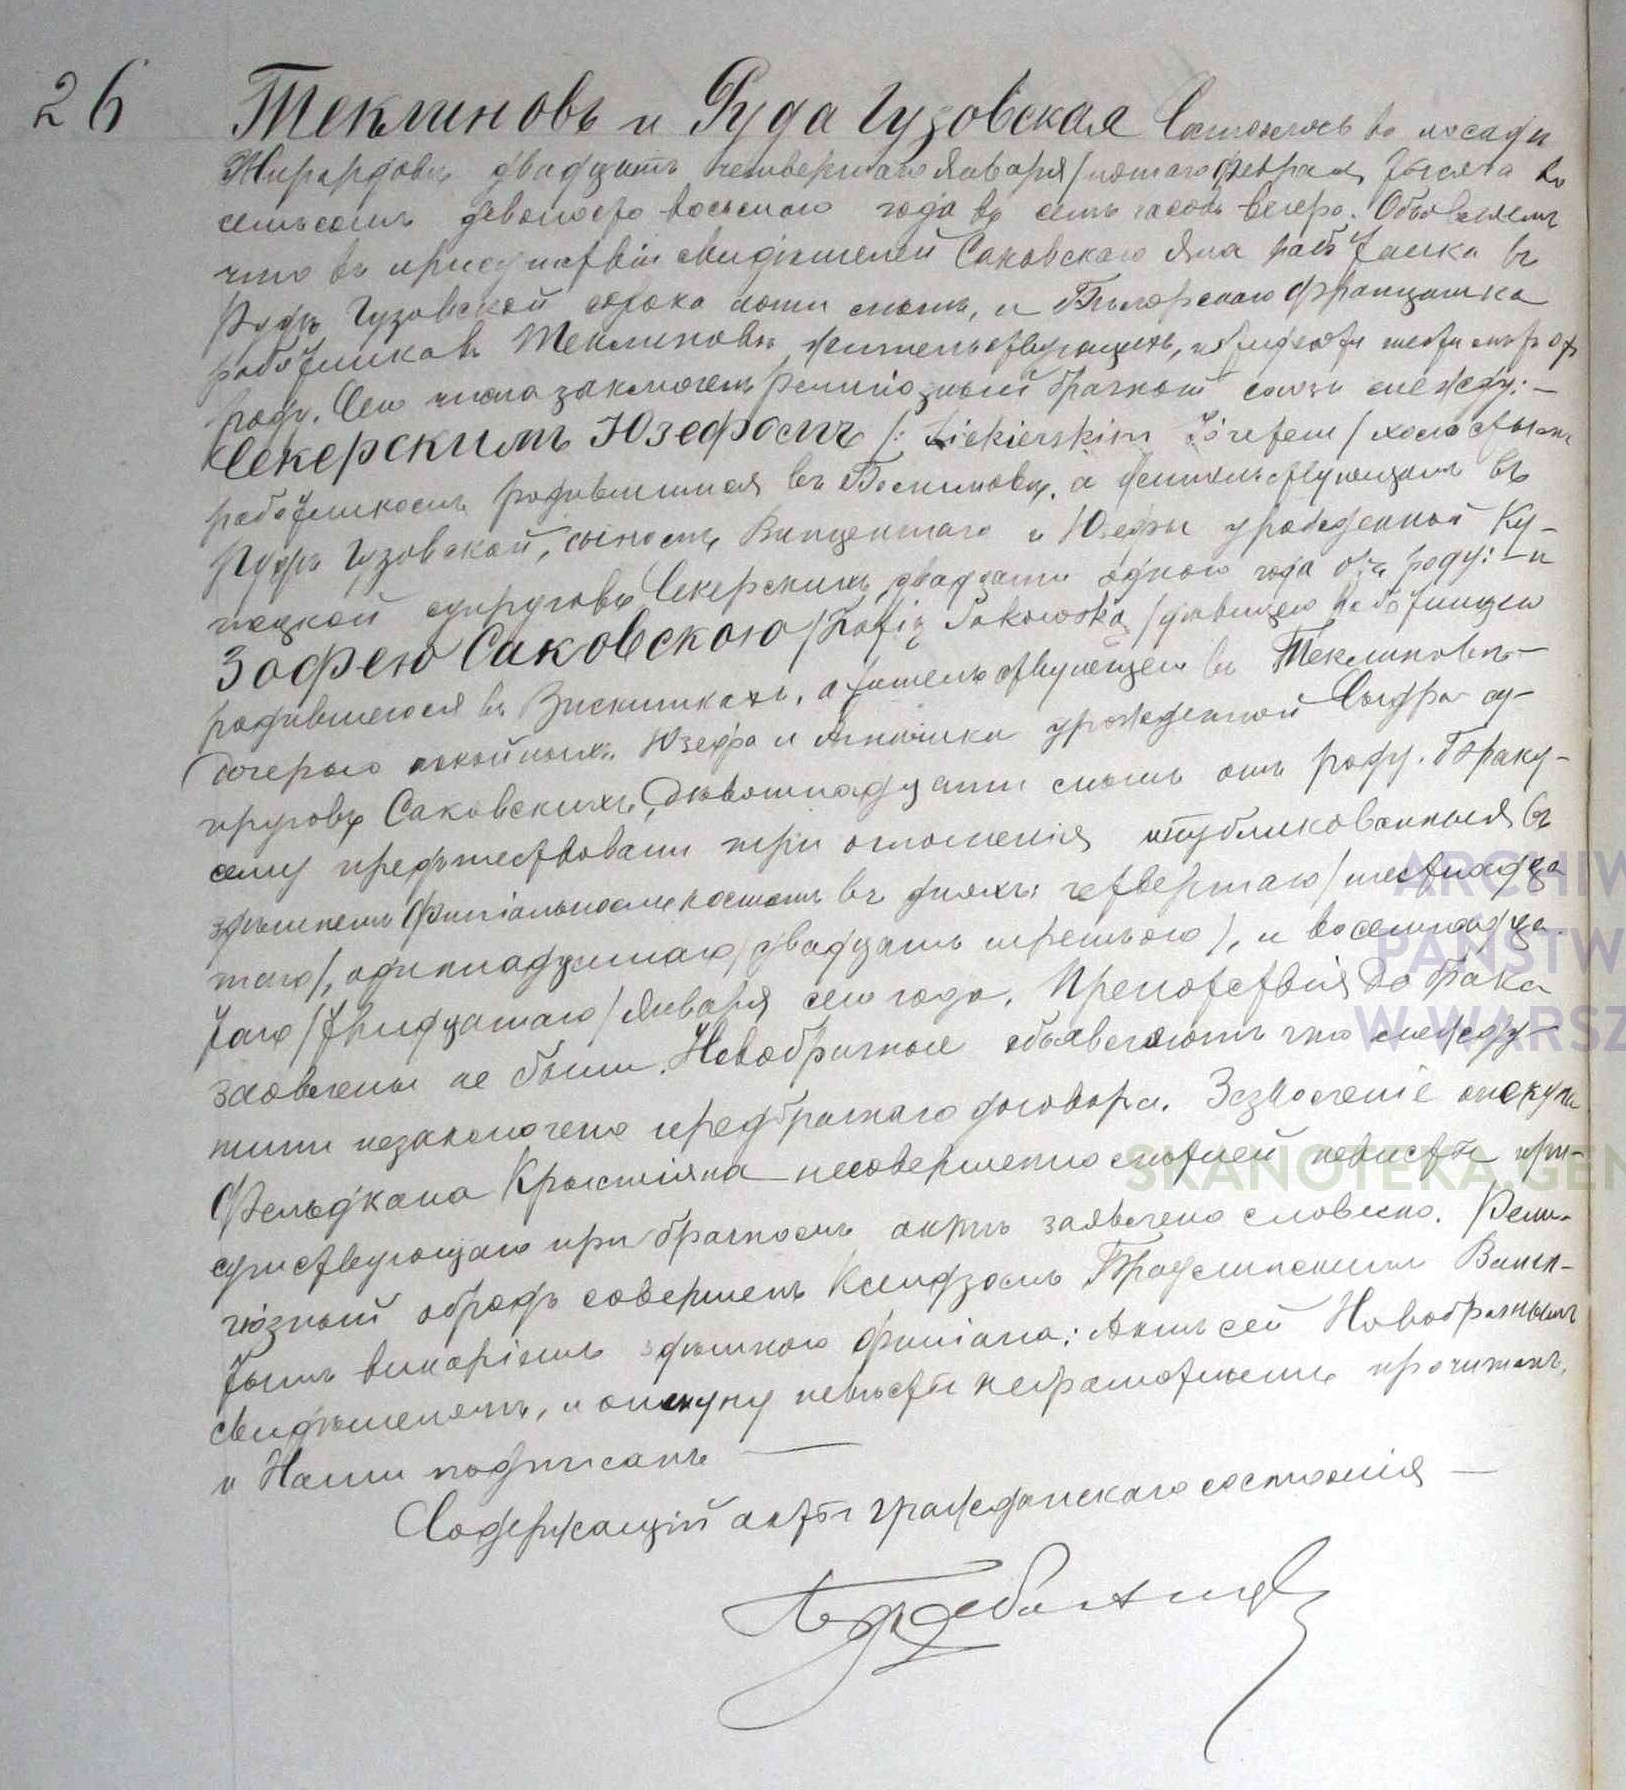 26
Теклиновъ и Руда Гузовская Состоялось въ посади
Жирардовѣ двадцать четвертаго Января/пятаго Февраля тысяча во
семьсотъ девяносто восьмаго года въ семь часовъ вечера. Объявляемъ
что въ присутствіи свидѣтелей Саковскаго Яна работника въ
Рудѣ Гузовской сорока пяти лѣтъ, и Францишка
работниковъ Теклиновѣ жительствующихъ, лѣтъ отъ
роду. Сего числа заключенъ религіозный брачный союзъ между:—
Секерскимъ Юзефомъ /: Siekierskim Józefem / холостымъ
работникомъ родившимся въ Болимовѣ, а жительствующимъ въ
Рудѣ Гузовской, сыномъ Винцентаго и Юзефы урожденной Ку-
супруговъ Секерскихъ, двадцати одного года отъ роду: — и
Зофею Саковскою /Zofią Sakowską /дѣвицею работницею
родившеюся въ Вискиткахъ, а жительствующею въ Теклиновѣ—
дочерью покойныхъ Юзефа и Агнѣшки урожденной су-
пруговъ Саковскихъ, девятнадцати лѣтъ отъ роду. Браку-
сему предшествовали три оглашенія опубликованныя въ
здѣшнемъ филіальномъ костелѣ въ дняхъ: четвертаго/шестнадца
таго/, одиннадцатаго/двадцать третьяго/, и восемнадца-
таго/тридцатаго/Января сего года. Препятствія до брака
заявлены не были. Новобрачные объявляютъ что между-
ними незаключено предбрачнаго договора. Зезволеніе опекуна
Фельдмана Крыстіяна несовершеннолѣтней невѣсты при-
сутствующаго при брачномъ актѣ заявлено словесно. Рели-
гіозный обрядъ совершенъ Ксендзомъ Винцен-
тымъ викаріемъ здѣшняго филіала: Актъ сей Новобрачнымъ
свидѣтелямъ, и опекуну невѣсты неграмотнымъ прочитанъ,
и Нами подписанъ —
Содержащій акты гражданскаго состоянія —